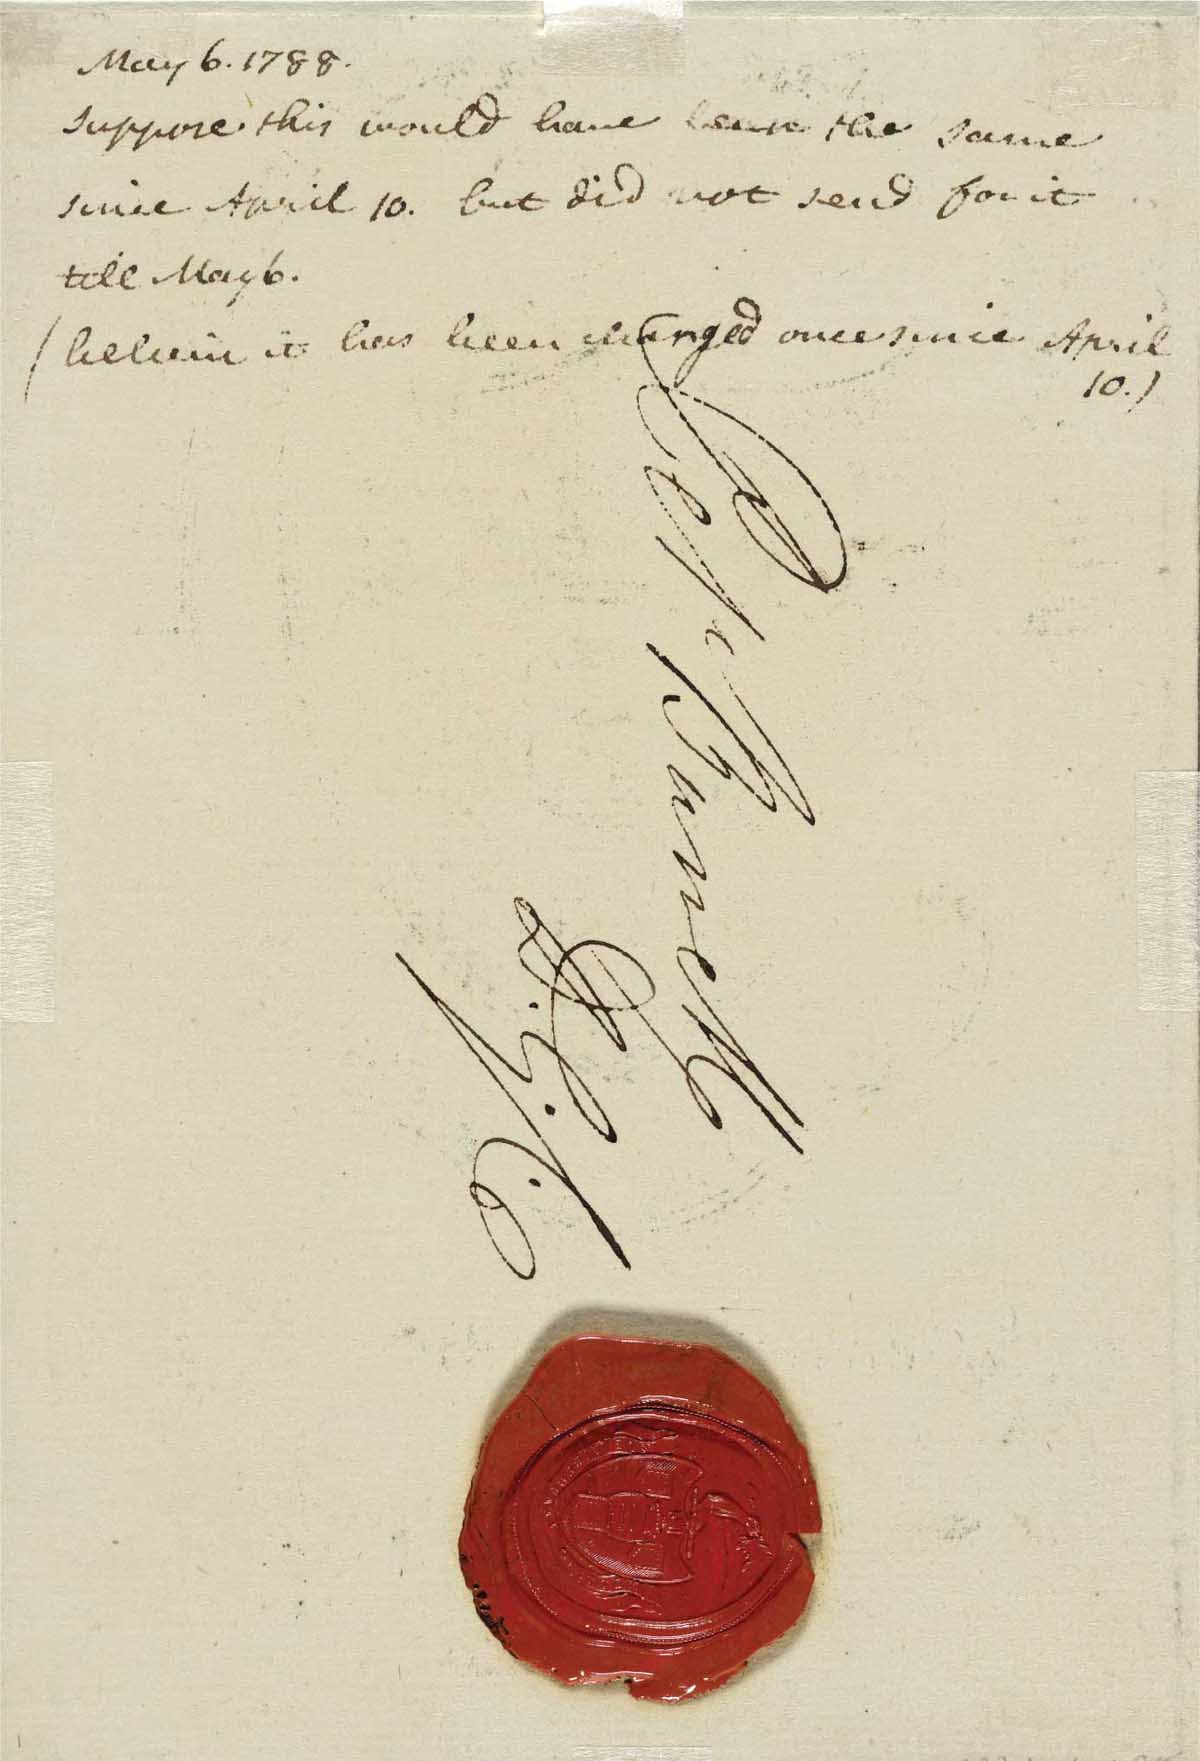 May 6. 1788.
suppose this would have been the same
since April 10. but did not send for it
till May 6.
(beleive it has been changed once since April
10.)
Burnett
N. C.